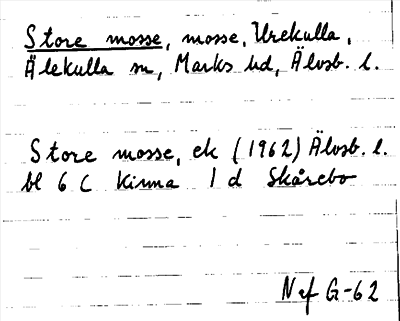 Store mosse, mosse, Urekulla,
Älekulla sn, Marks hd, Älvsb. l.
Store mosse, ek (1962) Älvsb. l.
bl 6 C Kinna 1 d Skårebo
Nef G-62